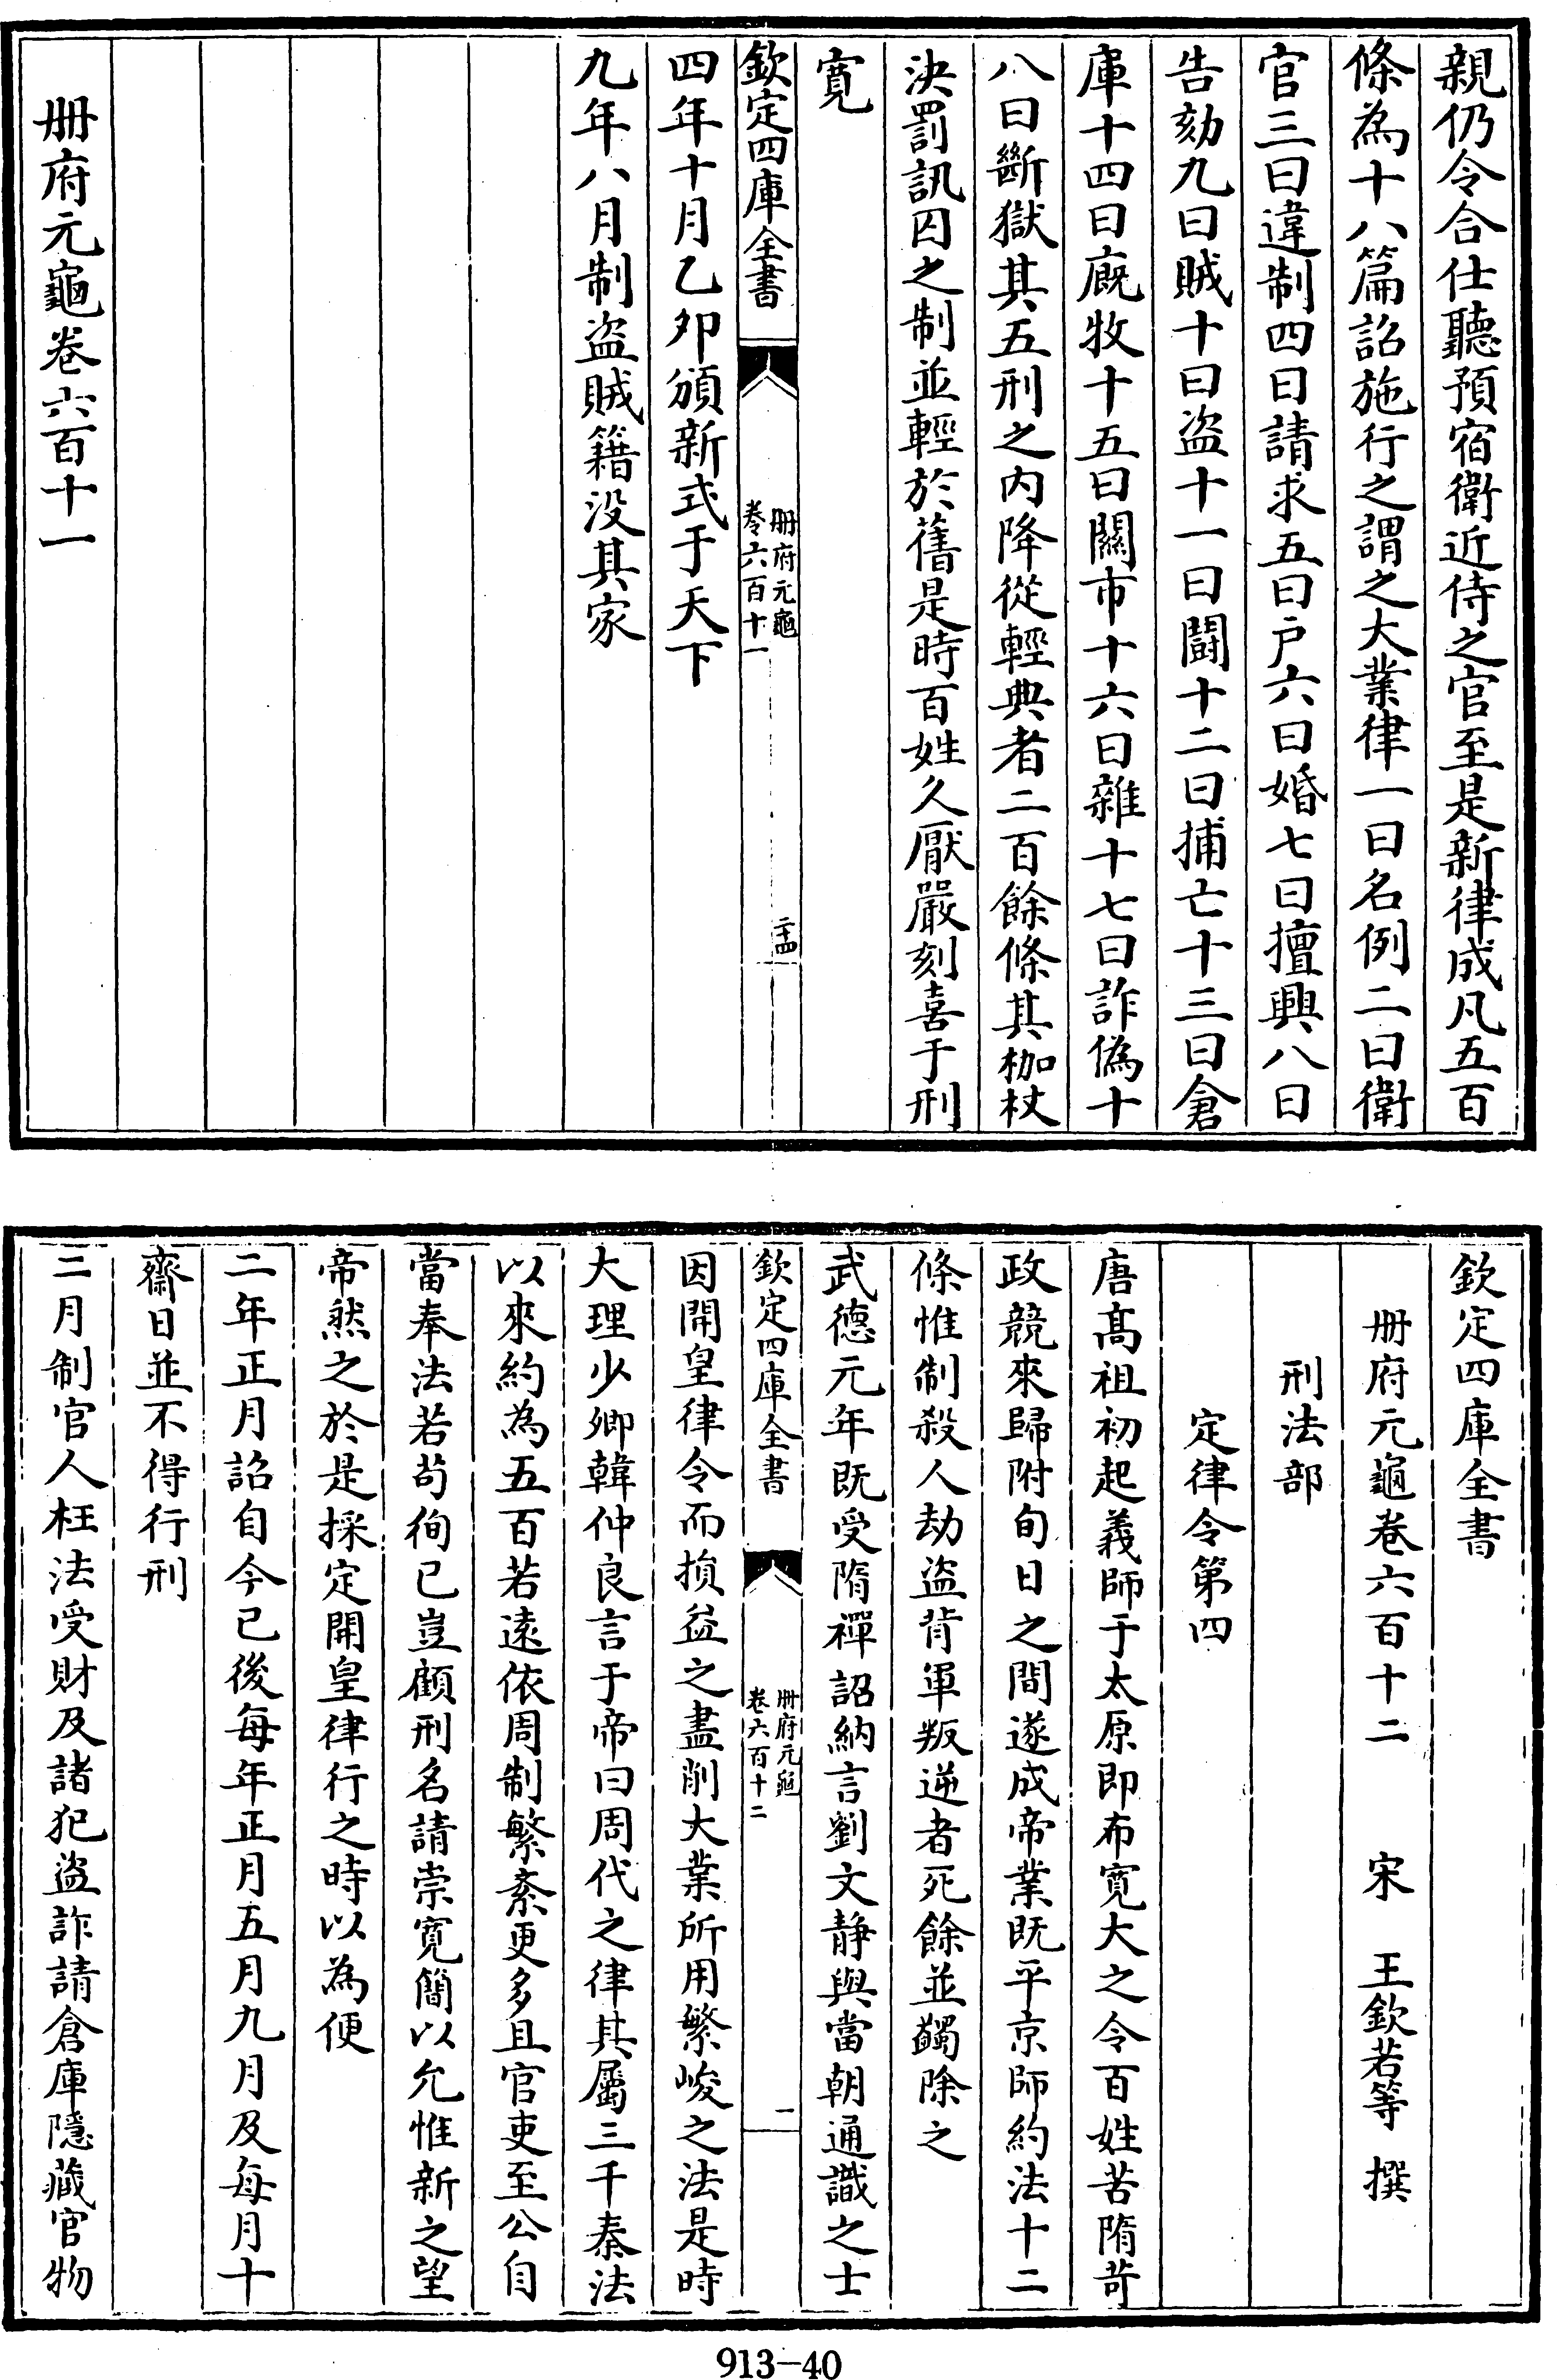 親仍令合仕聽預宿衛近侍之官至是新律成凡五百
條為十八篇詔施行之謂之大業律一曰名例二曰衛
官三曰違制四曰請求五曰户六曰婚七曰擅興八曰
告劾九曰賊十曰盗十一曰鬬十二曰捕亡十三曰倉
庫十四曰廐牧十五曰關市十六曰雜十七曰詐偽十
八曰斷獄其五刑之内降從輕典者二百餘條其枷杖
決罰訊囚之制並輕於舊是時百姓久厭嚴刻喜于刑
寛
欽定四庫全書
册府元龜
卷六百十一
二十四
四年十月乙夘頒新式于天下
九年八月制盗賊籍没其家
册府元龜卷六百十一
欽定四庫全書
册府元龜卷六百十二 宋 王欽若等 撰
刑法部
定律令第四
唐髙祖初起義師于太原即布寛大之令百姓苦隋苛
政競來歸附旬日之間遂成帝業既平京師約法十二
條惟制殺人劫盗背軍叛逆者死餘並蠲除之
武德元年既受隋禪詔納言劉文静與當朝通識之士
欽定四庫全書
册府元龜
卷六百十二
一
因開皇律令而損益之盡削大業所用繁峻之法是時
大理少卿韓仲良言于帝曰周代之律其屬三千秦法
以來約為五百若遠依周制繁紊更多且官吏至公自
當奉法若茍徇已豈顧刑名請崇寛簡以允惟新之望
帝然之於是採定開皇律行之時以為便
二年正月詔自今已後每年正月五月九月及每月十
齋日並不得行刑
二月制官人枉法受財及諸犯盗詐請倉庫隱藏官物
913-40